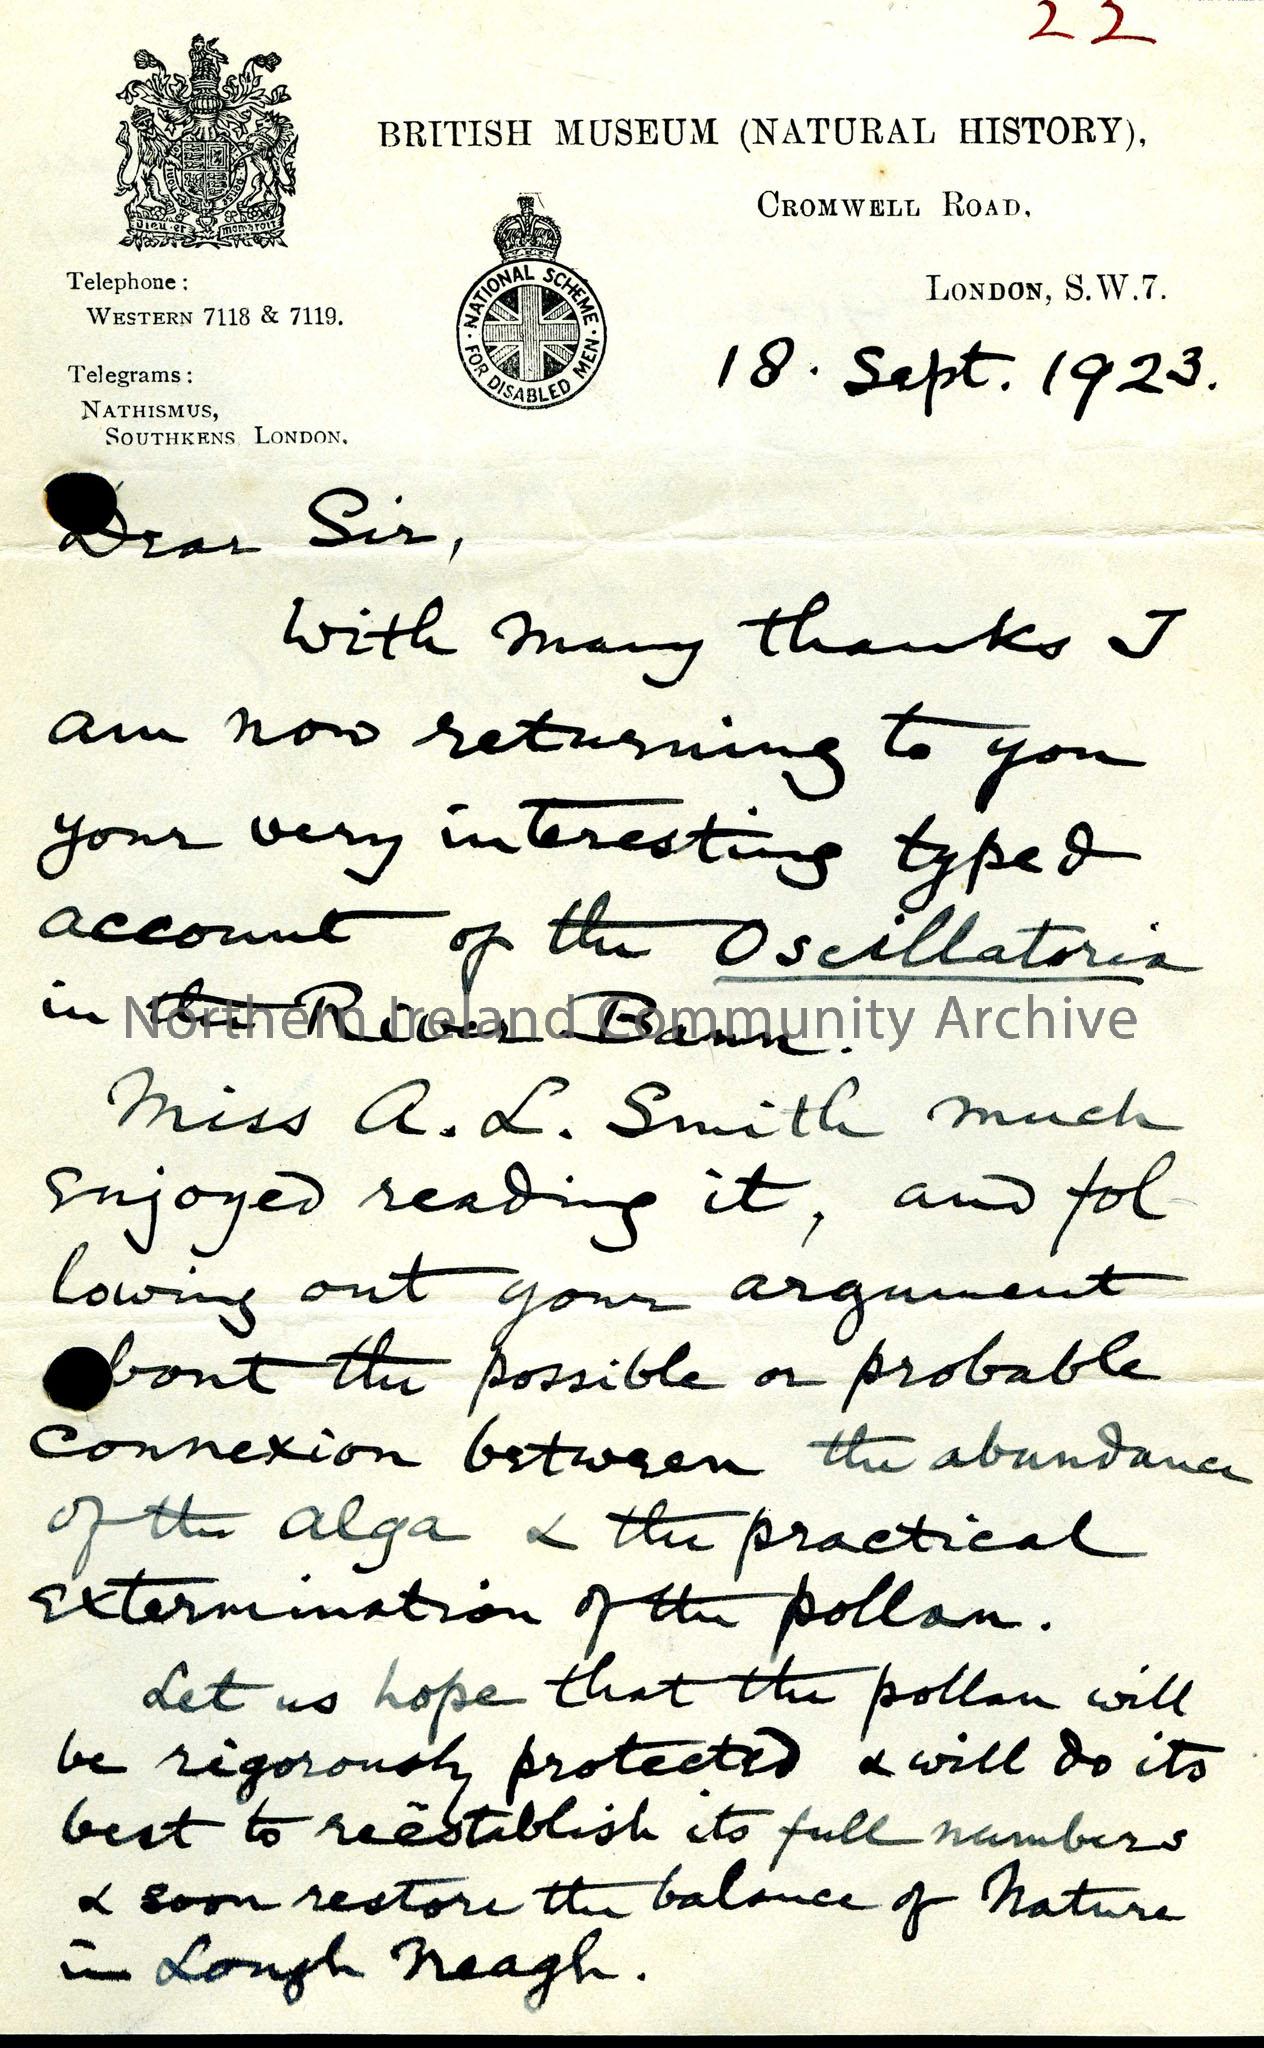 22
BRITISH MUSEUM (NATURAL HISTORY),
CROMWELL ROAD,
LONDON, S.W.7.
Dieu et mon droit
Telephone:
WESTERN 7118 & 7119.
Telegrams:
NATHISMUS,
SOUTHKENS, LONDON.
· NATIONAL SCHEME ·
FOR DISABLED MEN
18. Sept. 1923.
Dear Sir,
With many thanks I
am now returning to you
your very interesting typed
account of the Oscillatoria
in the River Bann.
Northern Ireland Community Archive
Miss A. L. Smith much
enjoyed reading it, and fol-
lowing out your argument
about the possible or probable
connexion between the abundance
of the alga & the practical
extermination of the pollan.
Let us hope that the pollan will
be rigorously protected & will do its
best to reëstablish its full numbers
& soon restore the balance of Nature
in Lough Neagh.